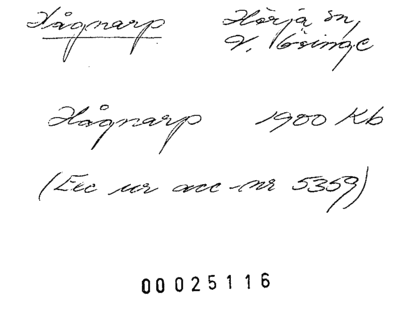 Vågnarp Hörja sn,
V. Göinge
Hågnarp 1900 Kb
(Exc ur acc-nr 5359)
00025116